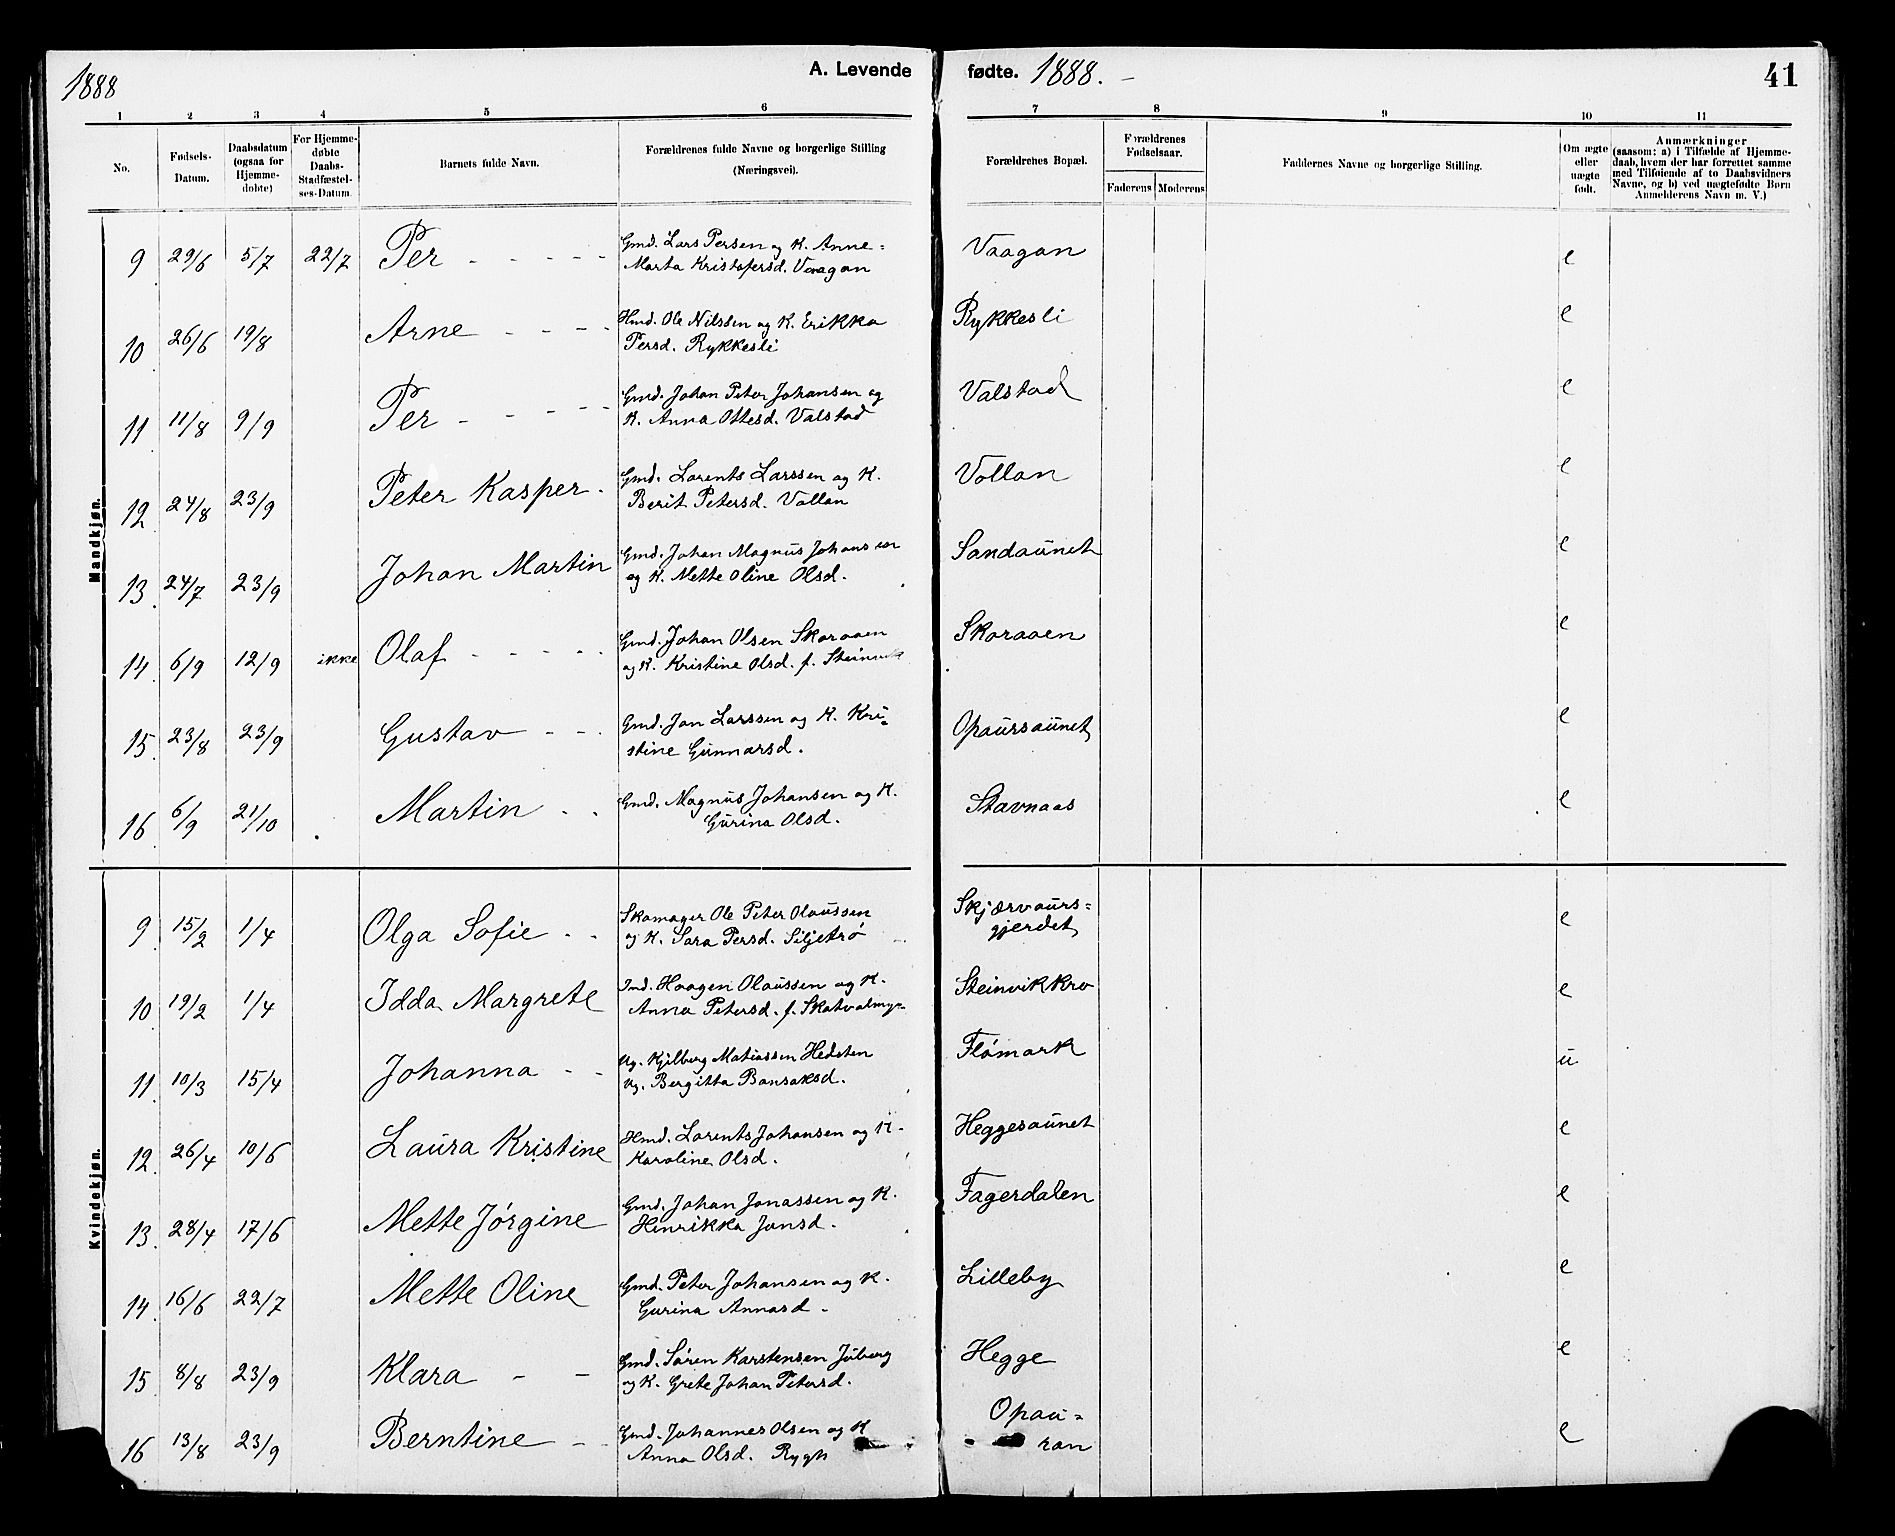 1888
A. Levende fødte. 1888. –
41
1 2 3 4 5 6 7 8 9 10 11
No.
Fødsels-
Datum.
Daabsdatum
(ogsaa for
Hjemme-
døbte)
For Hjemme-
døbte
Daabs-
Stadfæstel-
ses-Datum.
Barnets fulde Navn.
Forældrenes fulde Navne og borgerlige Stilling
(Næringsvei).
Forældrenes Bopæl.
Forældrenes
Fødselsaar.
Faderens Moderens
Faddernes Navne og borgerlige Stilling.
Om ægte
eller
uægte
født.
Anmærkninger
(saasom: a) i Tilfælde af Hjemme-
daab, hvem der har forrettet samme
med Tilføiende af to Daabsvidners
Navne, og b) ved uægtefødte Børn
Anmelderens Navn m. V.)
Mandkjøn.
9 29/6 5/7 22/7 Per - - - - - Gmd. Lars Persen og K. Anne= Vaagan e
Marta Kristofersd. Vaagan
10 26/6 19/8 Arne - - - - Hmd. Ole Nilssen og K. Erikka Rykkesli e
Persd. Rykkesli
11 11/8 9/9 Per - - - - - Gmd. Johan Peter Johansen og Valstad e
K. Anna Ottesd. Valstad
12 24/8 23/9 Peter Kasper - Gmd. Lorents Larssen og K. Vollan e
Berit Petersd. Vollan
13 24/7 23/9 Johan Martin Gmd. Johan Magnus Johansen Sandaunet e
og K. Mette Oline Olsd.
14 6/9 12/9 ikke Olaf - - - - - Gmd. Johan Olsen Skoraaen Skoraaen e
og K. Kristine Olsd. f. Steinvik
15 23/8 23/9 Gustav - - - Gmd. Jon Larssen og K. Kri- Opaursaunet e
stine Gunnarsd.
16 6/9 21/10 Martin - - Gmd. Magnus Johansen og K. Stavnaas e
Gurina Olsd.
Kvindekjøn.
9 15/2 1/4 Olga Sofie - - Skomager Ole Peter Olaussen Skjærvaurs= e
og K. Sara Persd. Siljetrø gjerdet
10 19/2 1/4 Idda Margrete Ind. Haagen Olaussen og K. Steinvikkro e
Anna Petersd. f. Skatvalmyr
11 10/3 15/4 Johanna - - Ug. Kjilberg Matiassen Hedsten Flømark u
Ug. Bergitta Bansaksd.
12 26/4 10/6 Laura Kristine Hmd. Lorents Johansen og K. Heggesaunet e
Karoline Olsd.
13 28/4 17/6 Mette Jørgine Gmd. Johan Jonassen og K. Fagerdalen e
Henrikka Jonsd.
14 16/6 22/7 Mette Oline Gmd. Peter Johansen og K. Lilleby e
Gurina Annasd.
15 8/8 23/9 Klara - - Gmd. Søren Karstensen Juberg Hegge e
og K. Grete Johan Petersd.
16 13/8 23/9 Berntine - - Gmd. Johannes Olsen og K Opau= e
Anna Olsd. Rygh ran